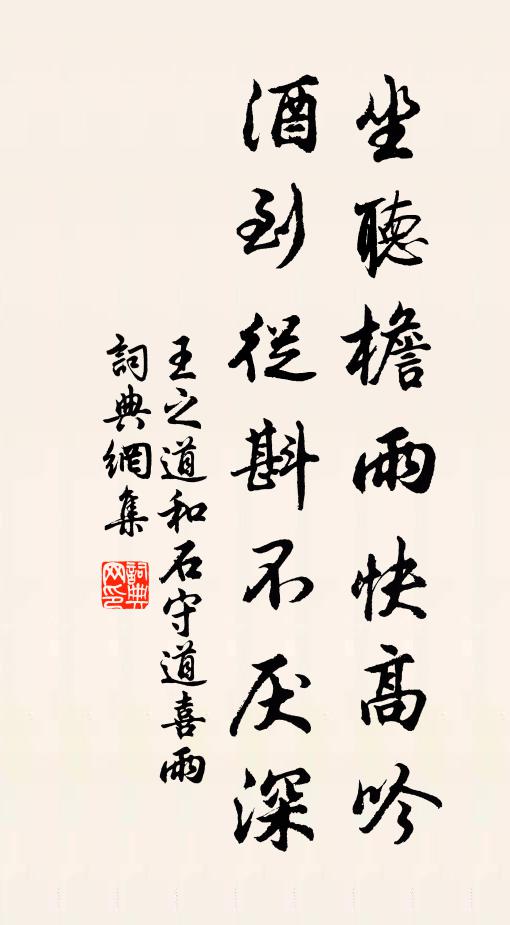 坐聽檐雨快高吟
酒到從斟不厌深
王之道和石守道喜雨
詞典網集
詞典网印